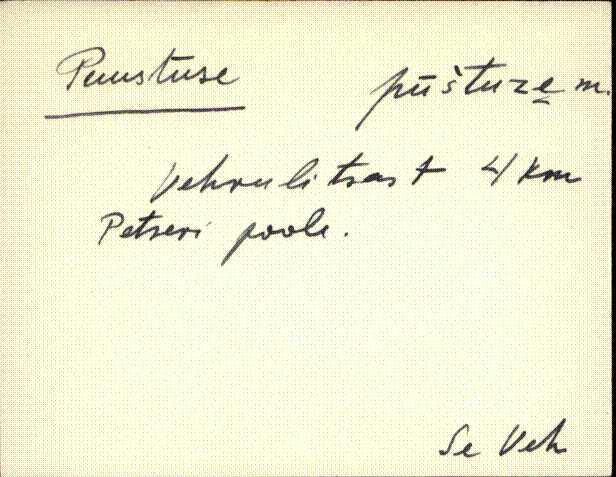 Puustuse pūštuzẹ m.
Vehrulitsast 4 km
Petseri poole.
Se Veh